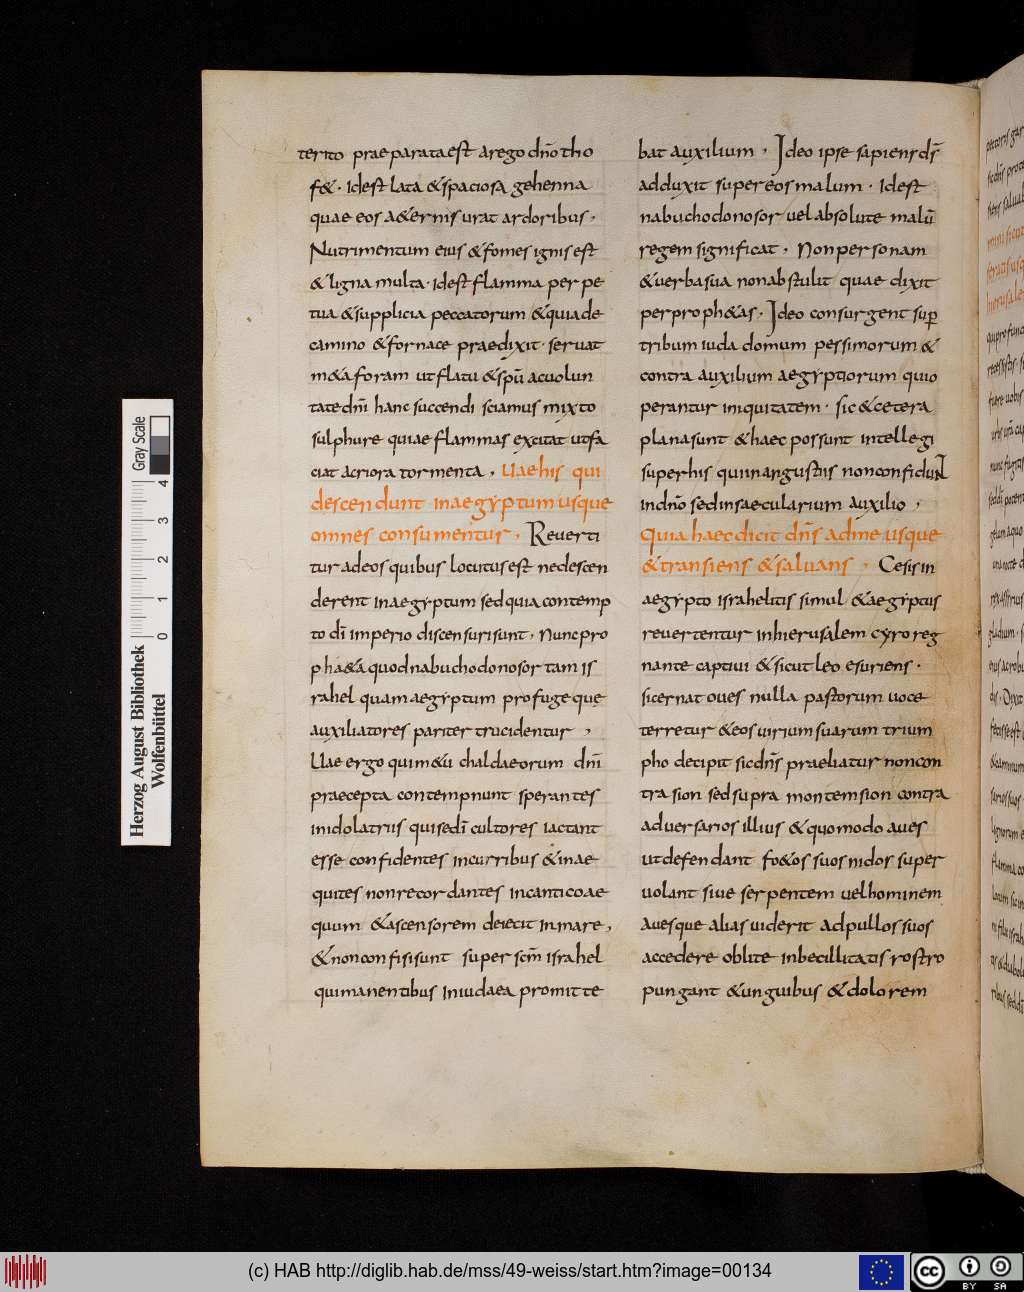 terito praeparata est a rego dño tho
f&. Idest lata & spaciosa gehenna
quae eos a&ernis urat ardoribus.
Nutrimentum eius & fomes ignis est
& ligna multa. Idest flamma per pe
tua & supplicia peccatorum & quia de
camino & fornace praedixit. servat
m&aforam ut flatu & spū a cuolun
tate dni hanc succendi sciamus mixto
sulphure quiae flammas excitat ut fa
ciat acriora tormenta. Uae his qui
descendunt in aegyptum usque
omnes consumentur. Reverti
tur ad eos quibus locutus est ne descen
derent in aegyptum sed quia contemp
to di imperio discensuri sunt. Nunc pro
ph&a quod nabuchodonosor tam is
rahel quam aegyptum profugeque
auxiliatores pariter trucidentur,
Uae ergo qui m&u chaldaeorum dni
praecepta contempnunt sperantes
in idolatriis qui se di cultores iactant
esse confidentes in curribus & in ae
quites non recordantes in cantico ae
quum & ascensorem deiecit in mare,
& non confisi sunt super scm israhel
qui manentibus in iudaea promitte
bat auxilium. Ideo ipse sapiens ds
adduxit super eos malum. Idest
nabuchodonosor vel absolute malū
regem significat. Non personam
& verba sua non abstulit quae dixit
per proph&as. Ideo consurgent sup
tribum iuda domum pessimorum &
contra auxilium aegyptiorum qui o
perantur iniquitatem. sic & cetera
plana sunt & haec possunt intellegi
super his qui in angustiis non confidunt
in dño sed in saecularium auxilio,
Quia haec dicit dñs ad me usque
& transiens & salvans. Cesis in
aegypto israhelitis simul & aegyptiis
revertentur in hierusalem cyro reg
nante captivi & sicut leo esuriens.
si cernat oves nulla pastorum voce
terretur & eos virium suarum trium
pho decipit sic dñs praeliatur non con
tra sion sed supra montem sion contra
adversarios illius & quomodo aves
ut defendant fo&os suos nidos super
volant sive serpentem vel hominem
avesque alias viderit ad pullos suos
accedere oblite inbecillitatis rostro
pungant & unguibus & dolorem
Herzog August Bibliothek
Wolfenbüttel
Gray Scale
0 1 2 3 4
(c) HAB http://diglib.hab.de/mss/49-weiss/start.htm?image=00134
cc BY SA